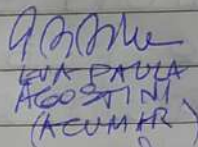 EVA PAULA
AGOSTINI
(ACUMAR)